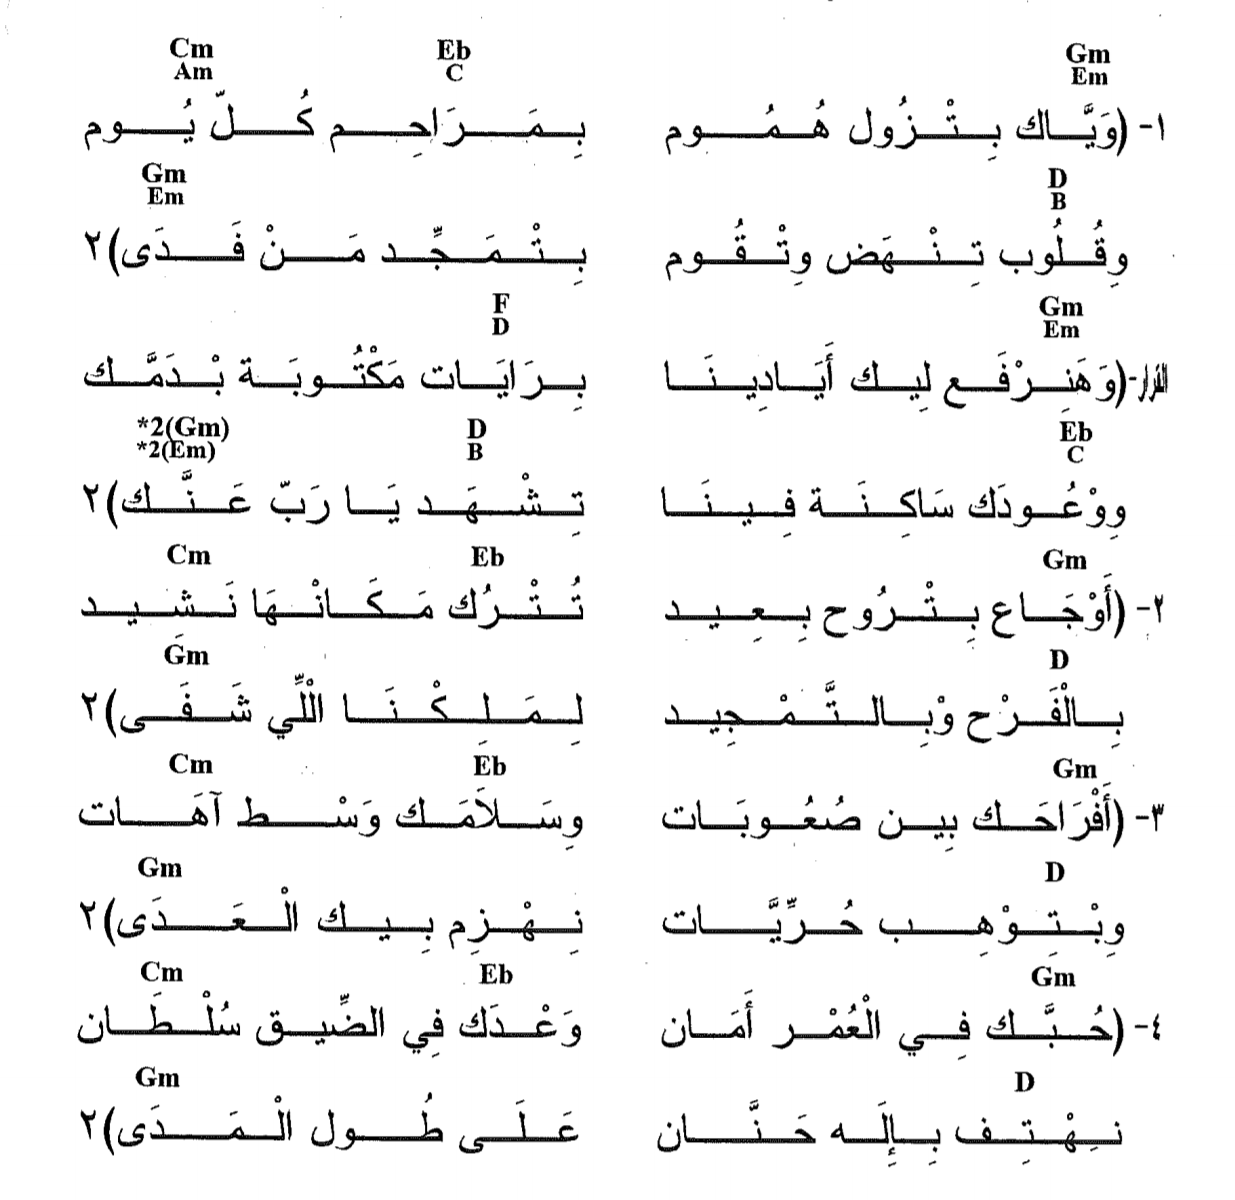 Gm Eb Cm
Em C Am
١- (وَيَّاك بِتْزُول هُمُوم بِمَرَاحِم كُلّ يُوم
D Gm
B Em
وِقُلُوب تِنْهَض وِتْقُوم بِتْمَجِّد مَنْ فَدَى)٢
Gm F
Em D
القرار-(وَهَنِرْفَع لِيك أَيَادِينَا بِرَايَات مَكْتُوبَة بْدَمَّك
Eb D *2(Gm)
C B *2(Em)
وِوْعُودَك سَاكِنَة فِينَا تِشْهَد يَا رَبّ عَنَّك)٢
Gm Eb Cm
٢- (أَوْجَاع بِتْرُوح بِعِيد تُتْرُك مَكَانْهَا نَشيد
D Gm
بِالْفَرْح وْبِالتَّمْجِيد لِمَلِكْنَا الْلِّي شَفَى)٢
Gm Eb Cm
٣- (أَفْرَاحَك بِين صُعُوبَات وِسَلاَمَك وَسْط آهَات
D Gm
وِبْتِوْهِب حُرِّيَّات نِهْزِم بِيك الْعَدَى)٢
Gm Eb Cm
٤- (حُبَّك فِي الْعُمْر أَمَان وَعْدَك فِي الضِّيق سُلْطَان
D Gm
نِهْتِف بِإِلَه حَنَّان عَلَى طُول الْمَدَى)٢